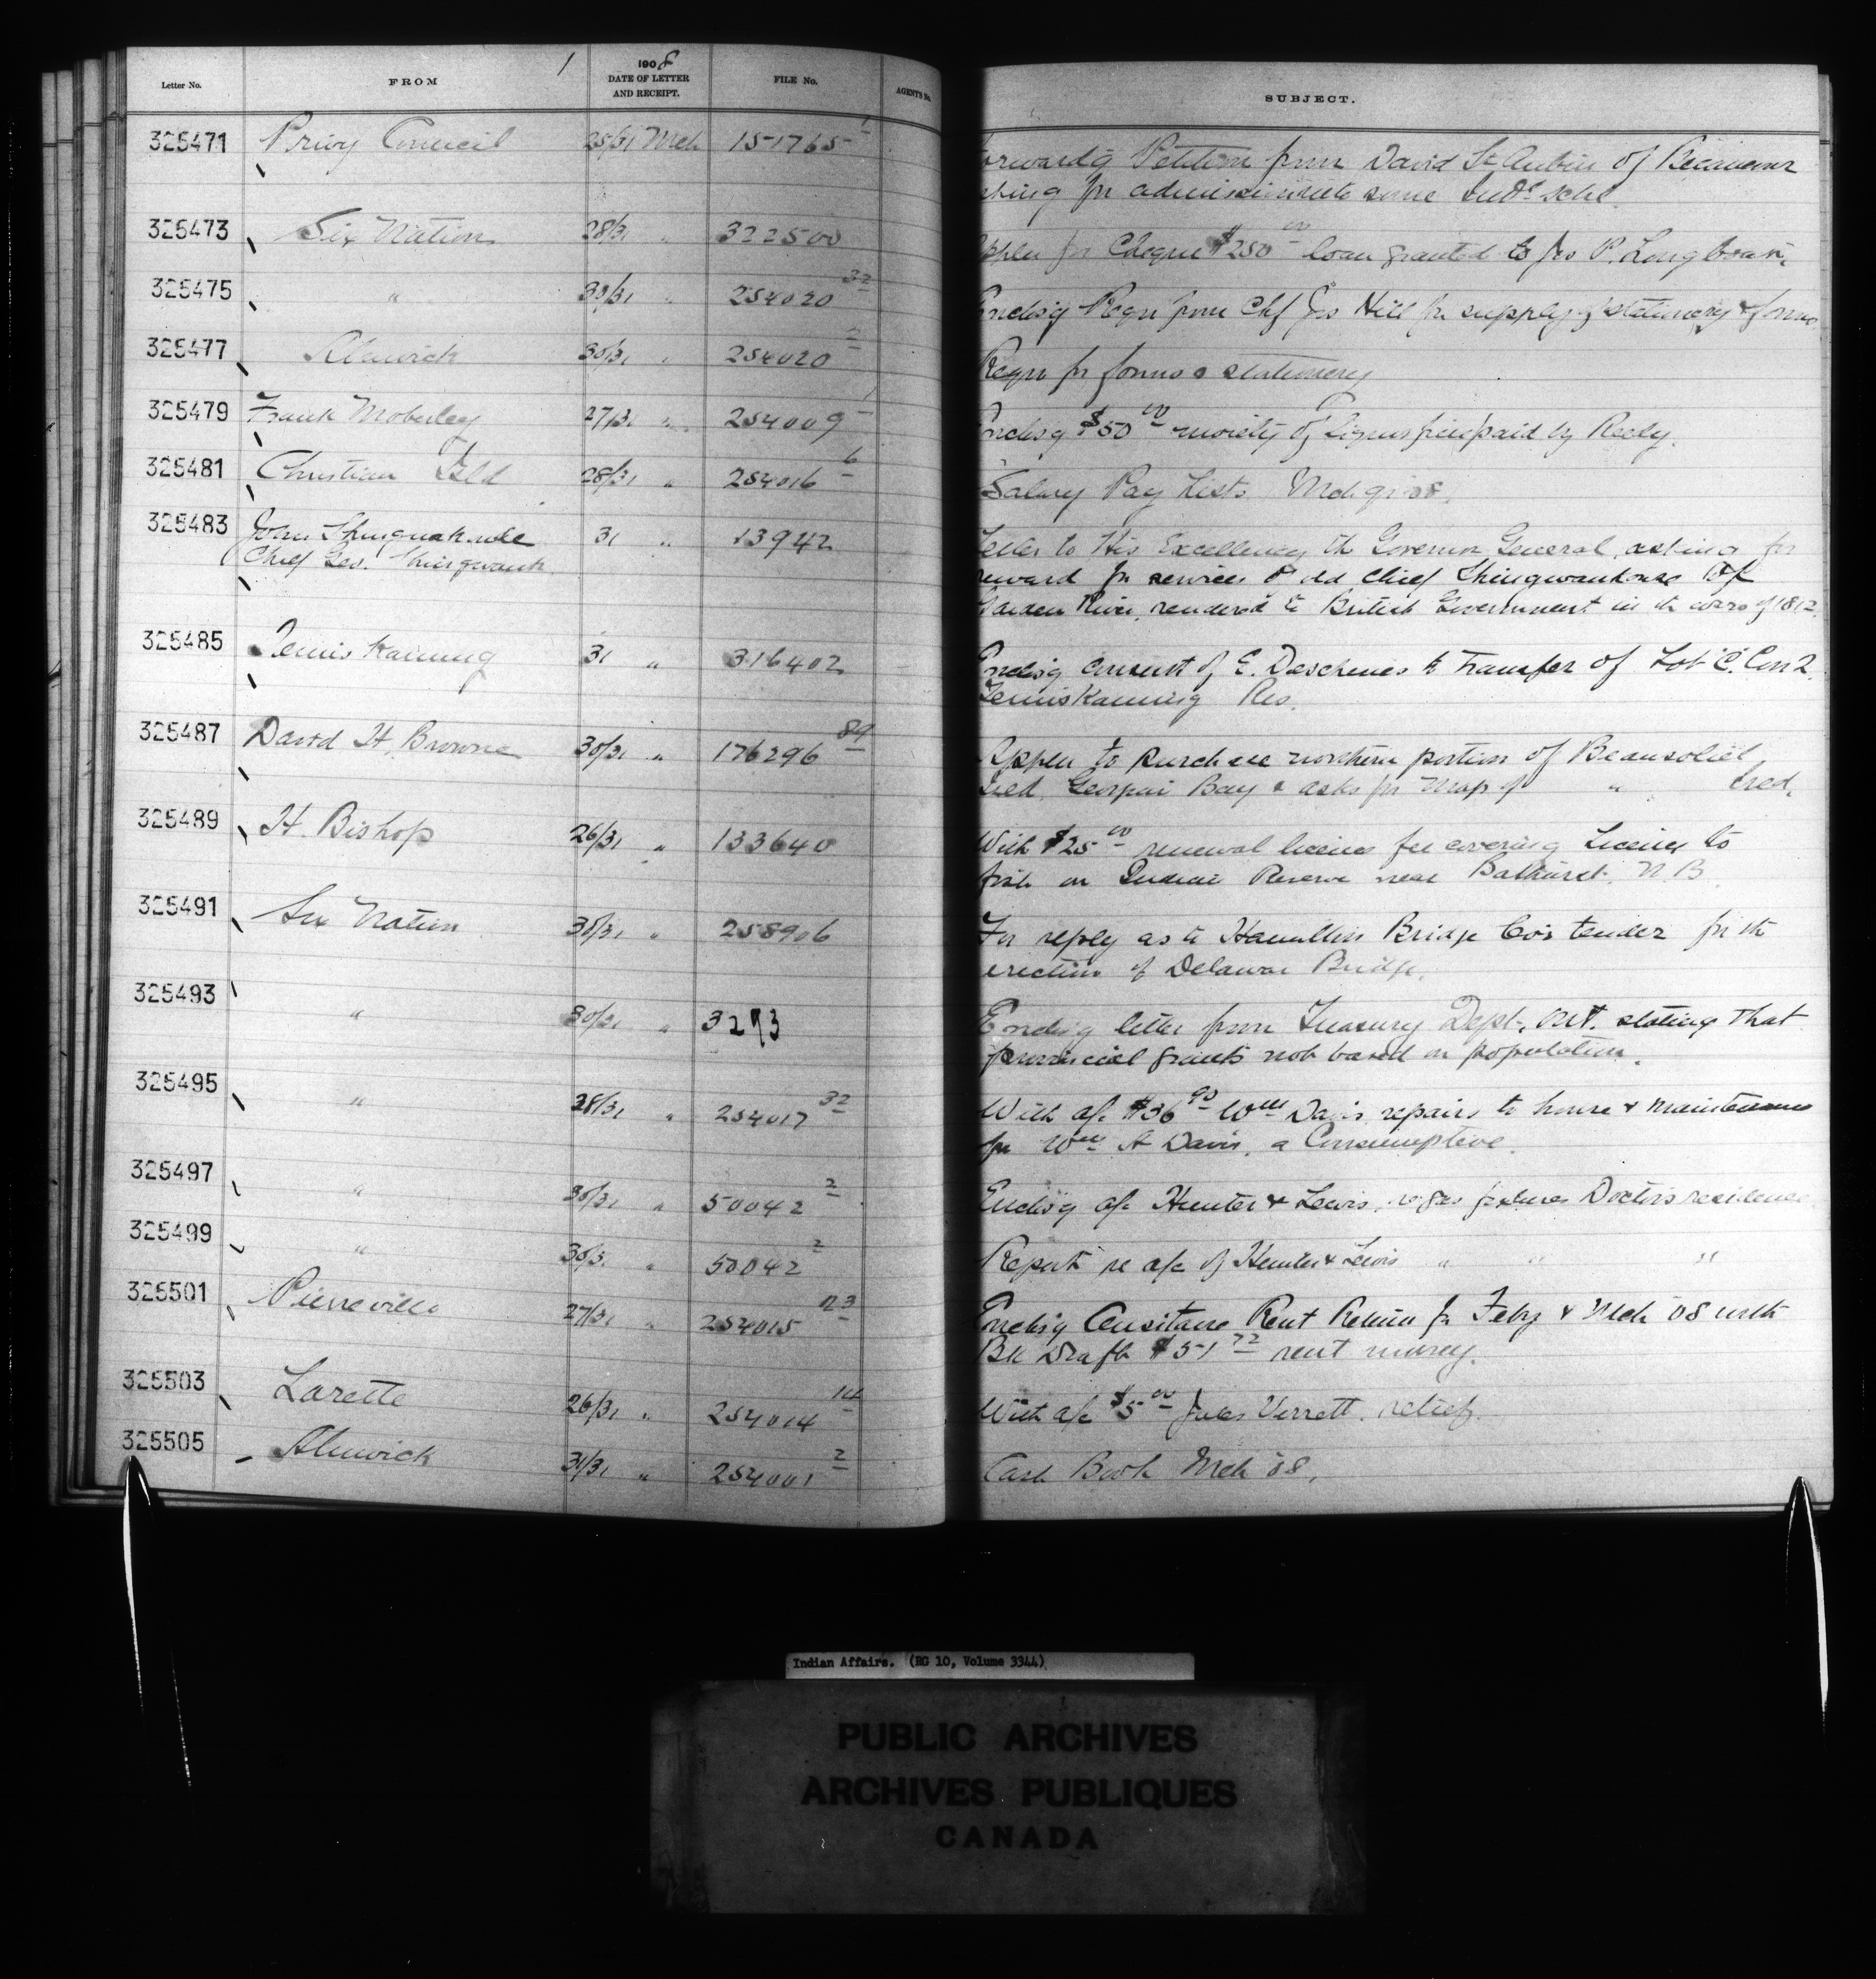 Letter No. FROM 1 1908 DATE OF LETTER AND RECEIPT. FILE No. AGENT'S No. SUBJECT.
325471 Privy Council 25/31 Mch 151765 1 Forwardg Petition from David St Aubin of Becancour
asking for admission into some Indn schl.
325473 Six Nation 28/31 " 322500 Appln for Cheque $250 00 loan granted to Jos P. Longboat.
325475 " 30/31 " 254020 32 Enclsg Reqn from Chf Jos Hill for supply of stationery & forms
325477 Alnwick 30/31 " 254020 2 Reqn for forms & stationery
325479 Frank Moberley 27/31 " 254009 1 Enclsg $50 00 moiety of fine paid by
325481 Christian Isld 28/31 " 254016 6 Salary Pay Lists Mch qr 08.
325483 John Shinguakude 31 " 13942 Letter to His Excellency the Governor General, asking for
Chief Geo. Shingwauk reward for services of old Chief Shingwaukonse of
Garden River, rendered to British Government in the wars of 1812.
325485 Temiskaming 31 " 316402 Enclsg consent of E. Deschenes to transfer of Lot C. Con 2.
Temiskaming Res.
325487 David H. Browne 30/31 " 176296 89 Appln to purchase northern portion of Beausoliel
Isld, Georgian Bay & asks for map of " Isld.
325489 H. Bishop 26/31 " 133640 With $25 00 renewal license fee covering License to
fish on Indian Reserve near Bathurst, N.B.
325491 Six Nation 30/31 " 258906 For reply as to Hamilton Bridge Co's tender for the
erection of Delaware Bridge.
325493 " 30/31 " 3293 Enclsg letter from Treasury Dept., Ont. stating that
provincial grants not based on population.
325495 " 28/31 " 254017 32 With a/c $36 90 Wm Davis, repairs to house & maintenance
for Wm A Davis, a Consumptive.
325497 " 30/31 " 50042 2 Enclsg a/c Hunter & Lewis, re gas fixtures Doctor's residence
325499 " 30/3 " 50042 2 Report re a/c of Hunter & Lewis " " "
325501 Pierreville 27/31 " 254015 23 Enclsg Rent Return for Feby & Mch 08 with
Bk Draft $51 72 rent money.
325503 Lorette 26/31 " 254014 14 With a/c $5 00 Jules Verrett, relief.
325505 Alnwick 31/31 " 254001 2 Cash Book Mch 08.
Indian Affairs. (RG 10, Volume 3344)
PUBLIC ARCHIVES
ARCHIVES PUBLIQUES
CANADA